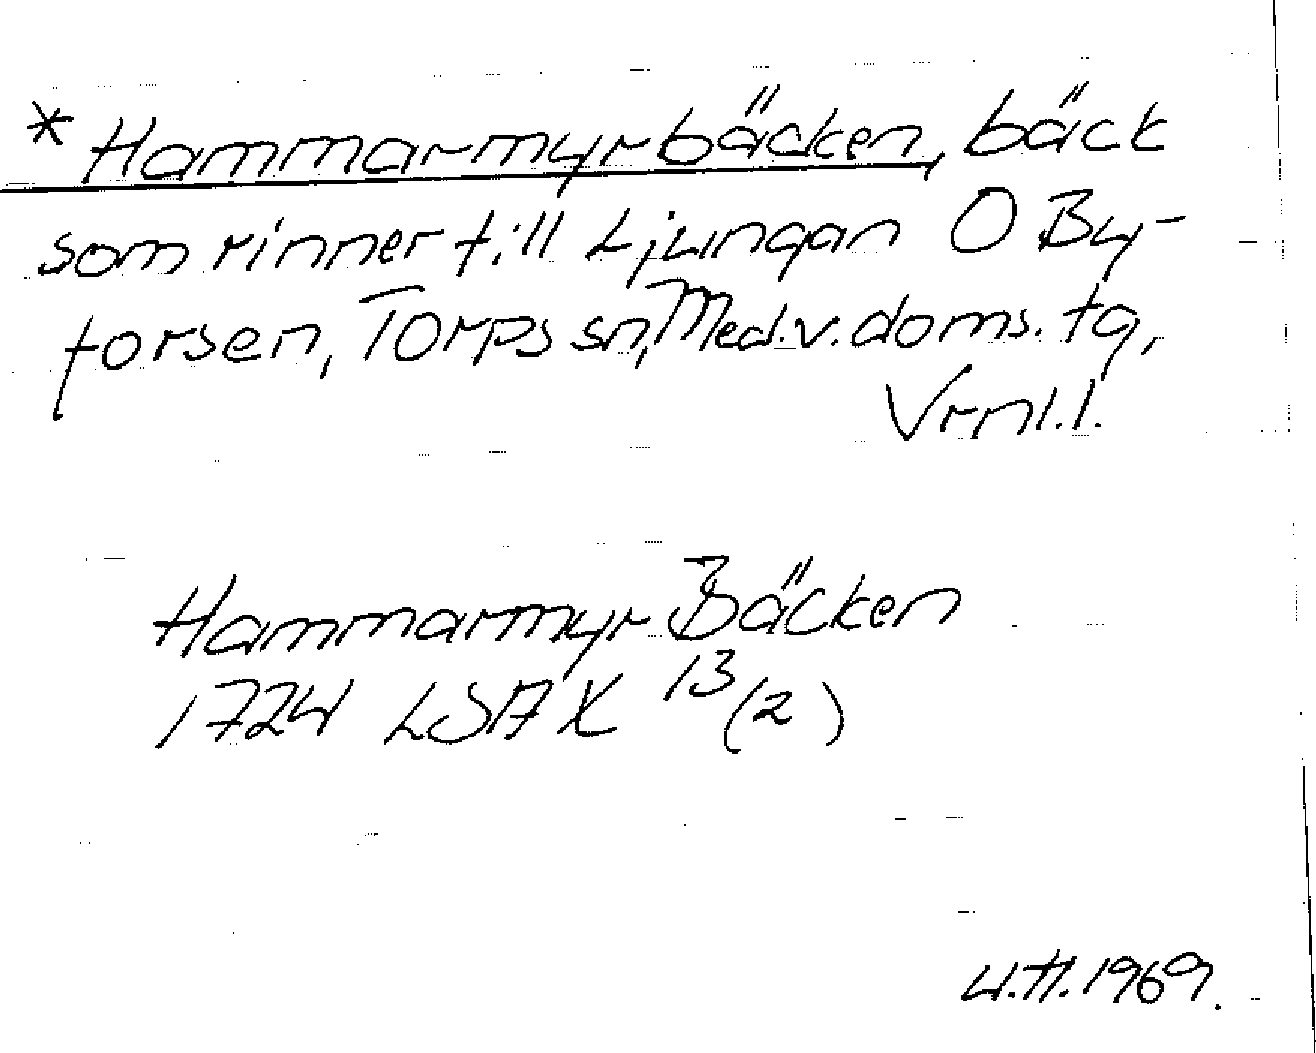 * Hammarmyrbäcken, bäck
som rinner till Ljungan O By-
forsen, Torps sn, Med.v.doms.tg,
Vrnl.l.
Hammarmyr Bäcken
1724 LSA X 13(2)
U.H.1969.